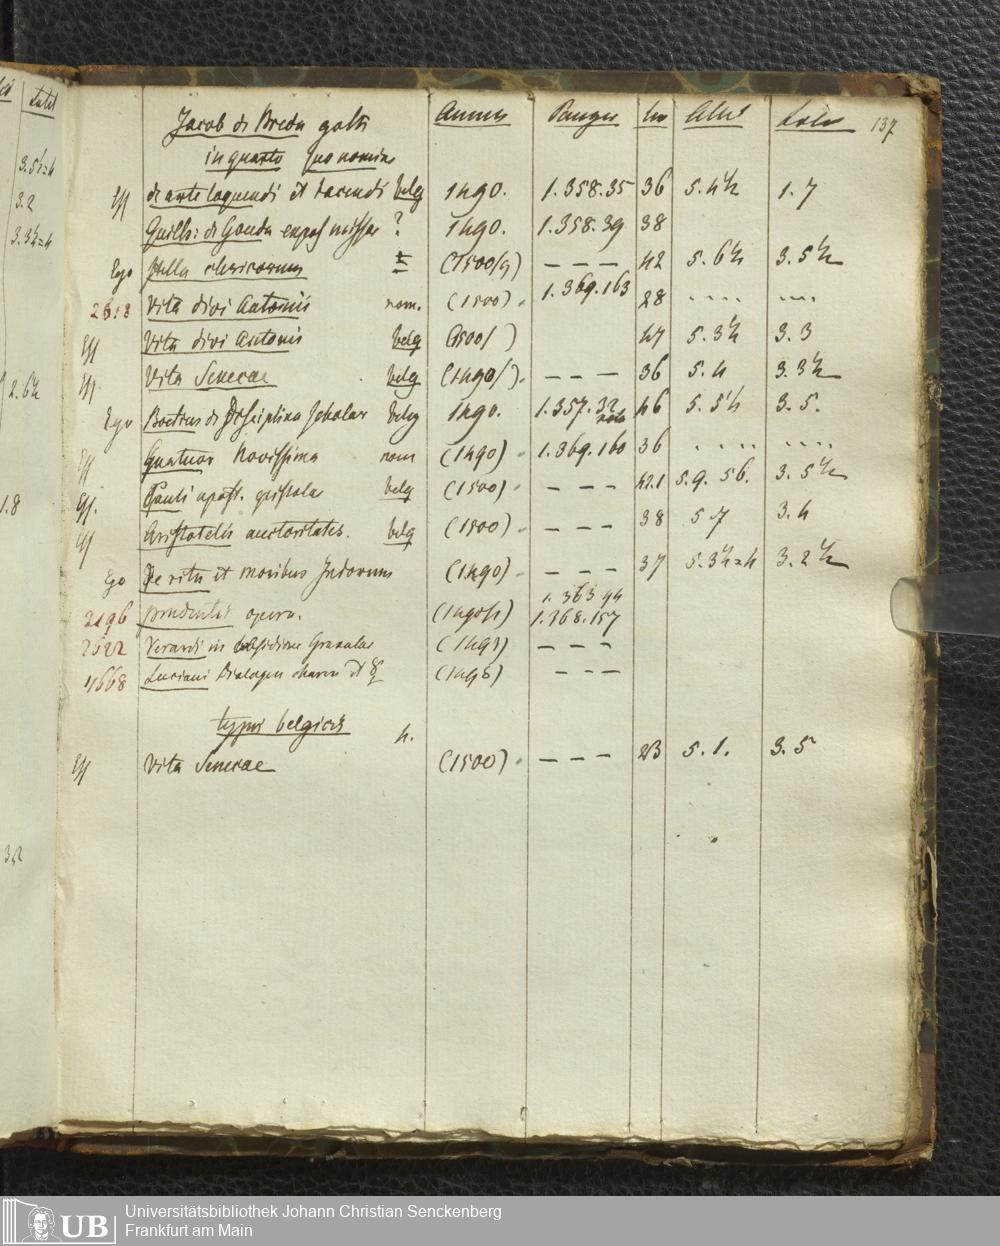 Jacob de Breda goth Annus Panzer Lin Altit Latit 137
in quarto sine nomine
Eff de arte loquendi et tacendi belg 1490. 1.358.35 36 5.4½ 1.7
Guilh: de Gouda expos missae ? 1490. 1.358.39 38
Ego Stella clericorum (1500/9) — — — 42 5.6½ 3.5½
2618 Vita divi Antonii nom. (1500) 1.369.163 28 .... ....
Eff Vita divi Antonii belg (1500/ ) 47 5.3½ 3.3
Eff Vita Senecae belg (1490/ ). — — — 36 5.4 3.3½
Ego Boetius de Disciplina Scholar belg 1490. 1.357.32 46 5.5½ 3.5.
Eff Quatuor Novissima nom (1490) 1.369.160 36 .... ....
Eff. Pauli apost. epistolae belg (1500) — — — 42.1 5.9. 56. 3.5½
Eff Aristotelis auctoritates. belg (1500) — — — 38 5.7 3.4
Ego De ritu et moribus Indorum (1490) — — — 37 5.3½=4 3.2½
1.363.94
2196 Prudentii opera. 1.368.157
2522 Verardi in (1493) — — —
4668 Luciani (1496) — — —
typis belgicis 4.
Eff Vita Senecae (1500) — — — 23 5.1. 3.5
Latit
3.5½=4
3.2
3.3½=4
2.6½
1.8
3.2
UB Universitätsbibliothek Johann Christian Senckenberg
Frankfurt am Main